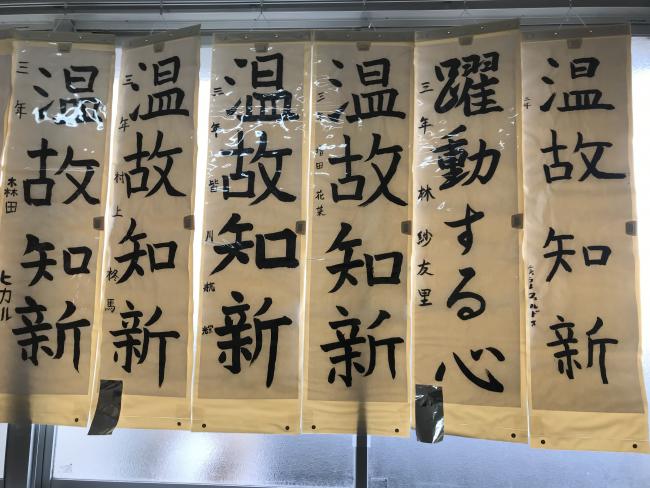 温故知新
三年
温故知新
三年 林 紗友里
躍動する心
三年
温故知新
三年 皆川
温故知新
三年 村上 柊馬
温故知新
三年 森田 ヒカル
温故知新